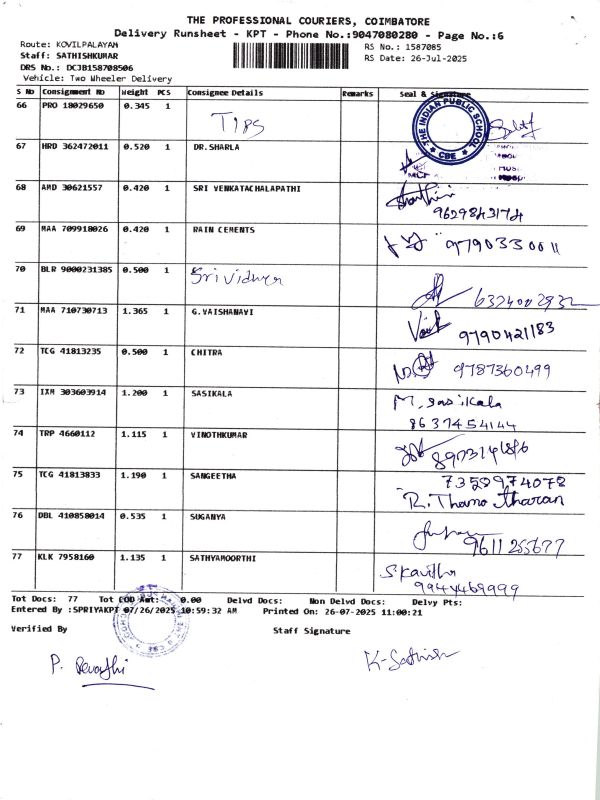 THE PROFESSIONAL COURIERS, COIMBATORE
Delivery Runsheet - KPT - Phone No.:9047080280 - Page No.:6
Route: KOVILPALAYAM RS No.: 1587085
Staff: SATHISHKUMAR RS Date: 26-Jul-2025
DRS No.: DCJB158708506
Vehicle: Two Wheeler Delivery
S No Consignment No Weight PCS Consignee Details Remarks Seal & Signature
66 PRO 18029650 0.345 1 TIPS
THE INDIAN PUBLIC SCHOOL CBE
67 HRD 362472011 0.520 1 DR.SHARLA
68 AMD 30621557 0.420 1 SRI VENKATACHALAPATHI
9629843174
69 MAA 709918026 0.420 1 RAIN CEMENTS 9790330011
70 BLR 9000231385 0.500 1 Srividhya
6324002932
71 MAA 710730713 1.365 1 G.VAISHANAVI
9790421183
72 TCG 41813235 0.500 1 CHITRA
9787360499
73 IXM 303603914 1.200 1 SASIKALA M. Sasikala
8637454144
74 TRP 4660112 1.115 1 VINOTHKUMAR
75 TCG 41813833 1.190 1 SANGEETHA 7358974078
R. Thamo tharan
76 DBL 410858014 0.535 1 SUGANYA
9611255677
77 KLK 7958160 1.135 1 SATHYAMOORTHI S. Kavitha
9944469999
Tot Docs: 77 Tot COD Amt: 0.00 Delvd Docs: Non Delvd Docs: Delvy Pts:
Entered By :SPRIYAKPT 07/26/2025 10:59:32 AM Printed On: 26-07-2025 11:00:21
Verified By Staff Signature
P. Revathi K-Sathish